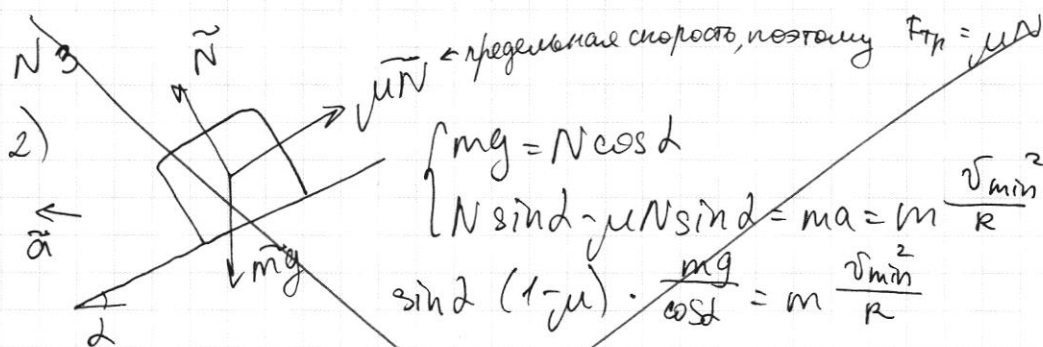 N3
2)
Ñ
μÑ ← предельная скорость, поэтому Fтр = μN
ã
m̃g
α
{ mg = N cosα
N sinα - μN sinα = ma = m v min² / R
sinα (1-μ) · mg / cosα = m v min² / R